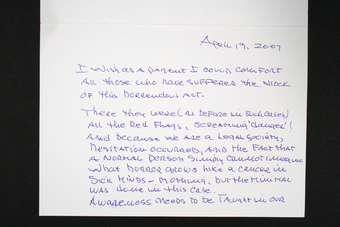 April 19, 2007
I wish as a parent I could comfort
all those who have suffered the shock
of this horrendous act.
There they were (as before in such cases)
all the red flags, screaming "danger"!
And because we are a legal society,
hesitation occurred, and the fact that
a normal person simply cannot imagine
what horror grows like a cancer in
sick minds - nothing, but the minimal
was done in this case.
Awareness needs to be taught in our